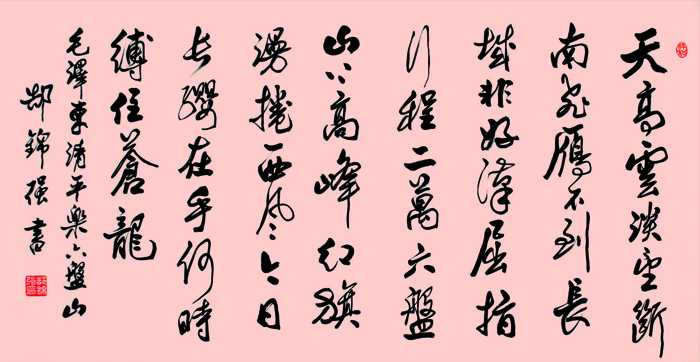 天高雲淡望斷
南飛鴈不到長
城非好漢屈指
行程二萬六盤
山上高峰紅旗
漫捲西風今日
長纓在手何時
縛住蒼龍
毛澤東清平樂六盤山
錦强書